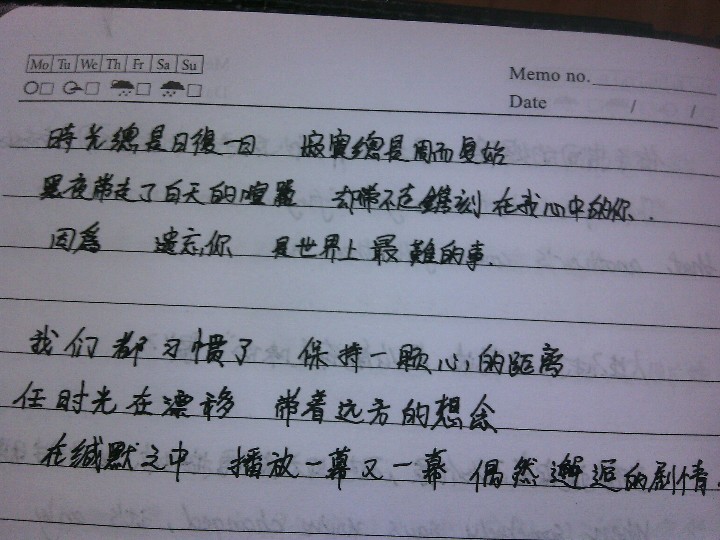 Mo Tu We Th Fr Sa Su
Memo no.
Date / /
時光總是日復一日 寂寞總是周而复始
黑夜带走了白天的喧囂 却带不走鐫刻在我心中的你.
因爲 遺忘你 是世界上最難的事.
我们都习惯了 保持一颗心的距离
任时光在漂移 带着远方的想念
在缄默之中 播放一幕又一幕 偶然邂逅的剧情.